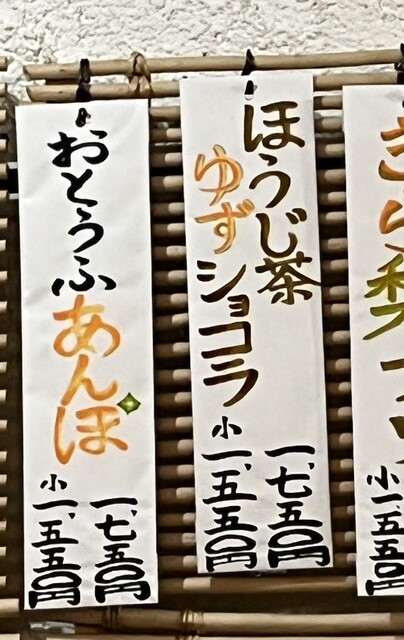 小一、五五〇
ほうじ茶
ゆずショコラ
一、七五〇円
小一、五五〇円
おとうふあんぽ
一、七五〇円
小一、五五〇円